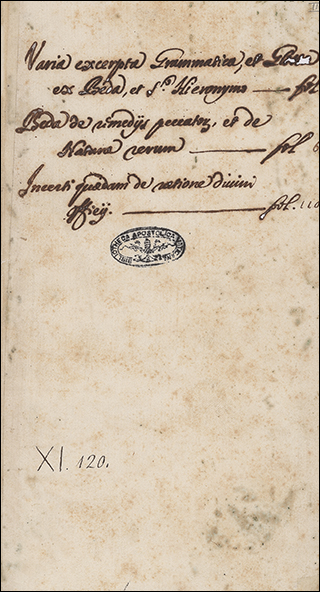 Varia excerpta Grammatica, et
ex Beda, et S.ti Hieronymo — fol
Beda de remedijs peccator, et de
Natura rerum — fol. 8
Incerti quædam de ratione divini
officij. — fol. 110
BIBLIOTHECA APOSTOLICA VATICANA
XI. 120.